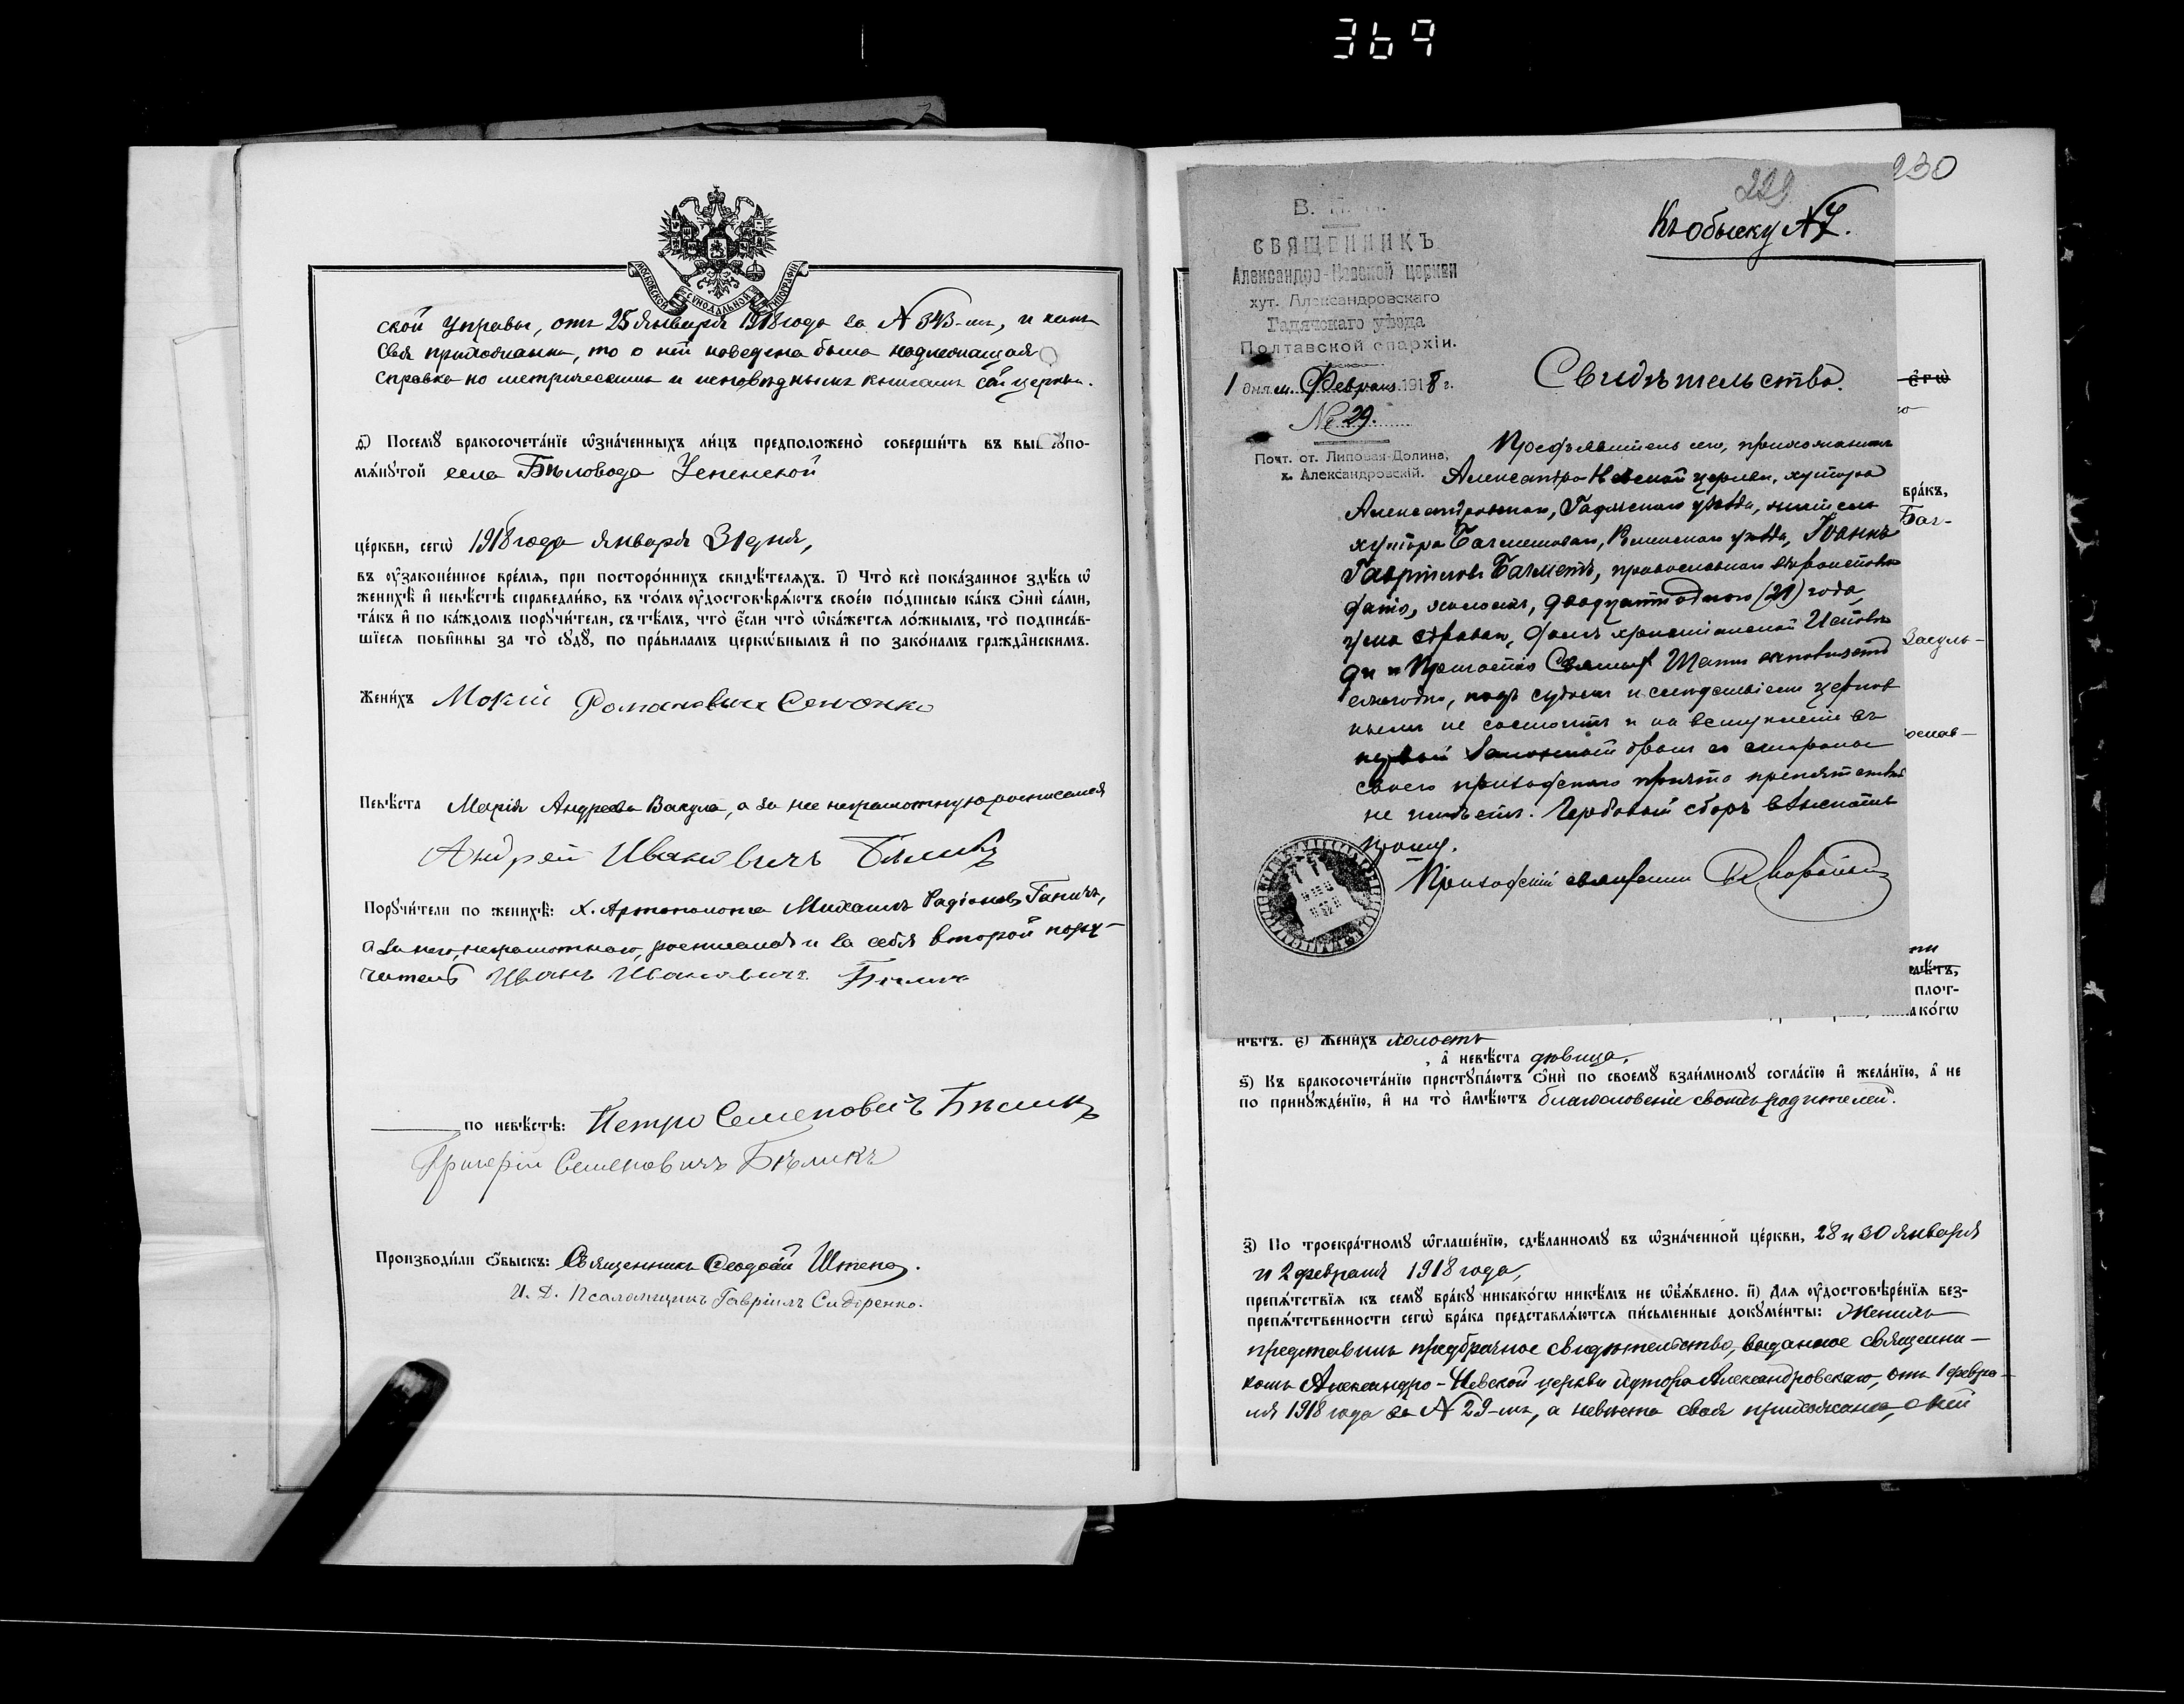 369
МОСКОВСКОЙ СУНОДАЛЬНОЙ ТИПОГРАФІИ
ской управы, отъ 25 января 1918 года за № 343-мъ, и какъ
своя прихожанка, то о ней наведена была надлежащая
справка по метрическимъ и исповѣднымъ книгамъ сей церкви.
д҃і) Посемꙋ бракосочета́нїе ѡзна́ченныхъ ли́цъ предположено̀ соверши́ть въ выш ꙋпо-
мѧ́нꙋтой села Бѣловода Успенской
це́ркви, сегѡ̀ 1918 года января 31 дня,
въ ᲂу҆зако́не́нное вре́мѧ, при посторо́ннихъ свидѣ́телѧхъ. і҃) Что̀ всѐ пока́занное здѣ́сь ѡ҆
женихѣ̀ и҆ невѣ́стѣ справедли́во, въ то́мъ ᲂу҆достовѣрѧ́ютъ свое́ю по́дписью ка́къ ѻ҆нѝ са́ми,
та́къ и҆ по ка́ждомъ порꙋчи́тели, съ тѣ́мъ, что̀ є҆́сли что̀ ѡ҆ка́жетсѧ ло́жнымъ, то̀ подписа́в-
шїесѧ пови́нны за то̀ сꙋдꙋ̀, по пра́виламъ церко́внымъ и҆ по зако́намъ гражда́нскимъ.
Жени́хъ Мокій Романовичъ Сенонко
Невѣ́ста Марія Андреева Вакула, а за нее неграмотную росписался
Андрей Ивановичъ Бѣликъ
Порꙋчи́тели по женихѣ̀: х. Артополота Михаилъ Радіоновъ Ганичъ,
а за него, неграмотнаго, росписался и за себя второй пору-
читель Иванъ Ивановичъ Бѣликъ
по невѣ́стѣ: Петро Семеновичъ Бѣликъ
Григорій Семеновичъ Бѣликъ
Производи́ли ѻ҆́быскъ: Священникъ Феодосій Штепа.
И. Д. Псаломщикъ Гавріилъ Сидоренко.
230
229
Къ обыску № 7.
В. П. И.
СВЯЩЕННИКЪ
Александро-Невской церкви
хут. Александровскаго
Гадячскаго уѣзда
Полтавской епархіи.
1 дня м. Февраля 1918 г.
№ 29.
Почт. от. Липовая-Долина,
х. Александровскій.
Свидѣтельство.
Предъявитель сего, прихожанинъ
Александро Невской церкви, хутора
Александровскаго, Гадячскаго уѣзда, житель
хутора Роменскаго уѣзда, Іоаннъ
Гавріиловъ православнаго вѣроисповѣ
данія, холостъ, двадцати одного (21) года,
ума здраваго, долгъ христіанской Исповѣ
ди и Причастія Святыхъ Таинъ исполняетъ
ежегодно, подъ судомъ и слѣдствіемъ церков
нымъ не состоитъ и на вступленіе въ
первый законный бракъ со стороны
своего приходскаго причта препятствій
не имѣетъ. Гербовый сборъ взыскать
прошу.
Приходскій священникъ
є҆гѡ̀
бра́къ,
Баг-
Засуль-
ослав-
пло́т-
никако́гѡ
нѣ́тъ. є҃) Жени́хъ холостъ
, а҆ невѣ́ста дѣвица.
ѕ҃) Къ бракосочета́нїю пристꙋпа́ютъ ѻ҆нѝ по своемꙋ̀ взаи́мномꙋ согла́сїю и҆ жела́нїю, а҆ не
по принꙋжде́нїю, и҆ на то̀ и҆мѣ́ютъ благословеніе своихъ родителей.
з҃) По троекра́тномꙋ ѡ҆глаше́нїю, сдѣ́ланномꙋ въ ѡ҆зна́ченной це́ркви, 28 и 30 января
и 2 февраля 1918 года,
препѧ́тствїѧ къ семꙋ̀ бра́кꙋ никако́гѡ никѣ́мъ не ѡ҆б̾ѧ́влено. и҃) Длѧ ᲂу҆достовѣре́нїѧ без-
препѧ́тственности сегѡ̀ бра́ка представлѧ́ютсѧ пи́сьменные докꙋме́нты: Женихъ
представилъ предбрачное свидѣтельство, выданное священни-
комъ Александро-Невской церкви хутора Александровскаго, отъ 1 февра-
ля 1918 года за № 29-мъ, а невѣста своя прихожанка, о ней